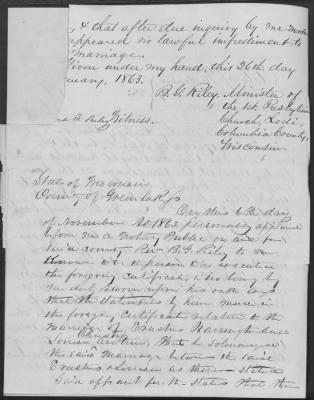 & that after due inquiry by me made
appeared no lawful impediment to
marriage.
Given under my hand, this 26th day
uary, 1863.
B. G. Riley, Minister of
the 1st. Presbyterian
Church, Lodi,
Columbia County,
Wisconsin.
Witness.
State of Wisconsin
County of Green Lake
On this 6th day
of November AD 1863, personally appeared
before me a Notary Public in and for
said county Rev B. G. Riley to me
known to be the person who executed
the foregoing certificate, & who being by
me duly sworn upon his oath says
that the statements by him made in
the foregoing certificate relative to the
marriage of Erastus Harrington and
that he solemnized
the said marriage between the said
Erastus
said appoint further states that the